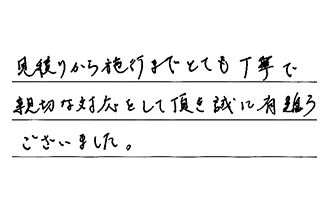 見積りから施行までとても丁寧で
親切な対応をして頂き誠に有難う
ございました。